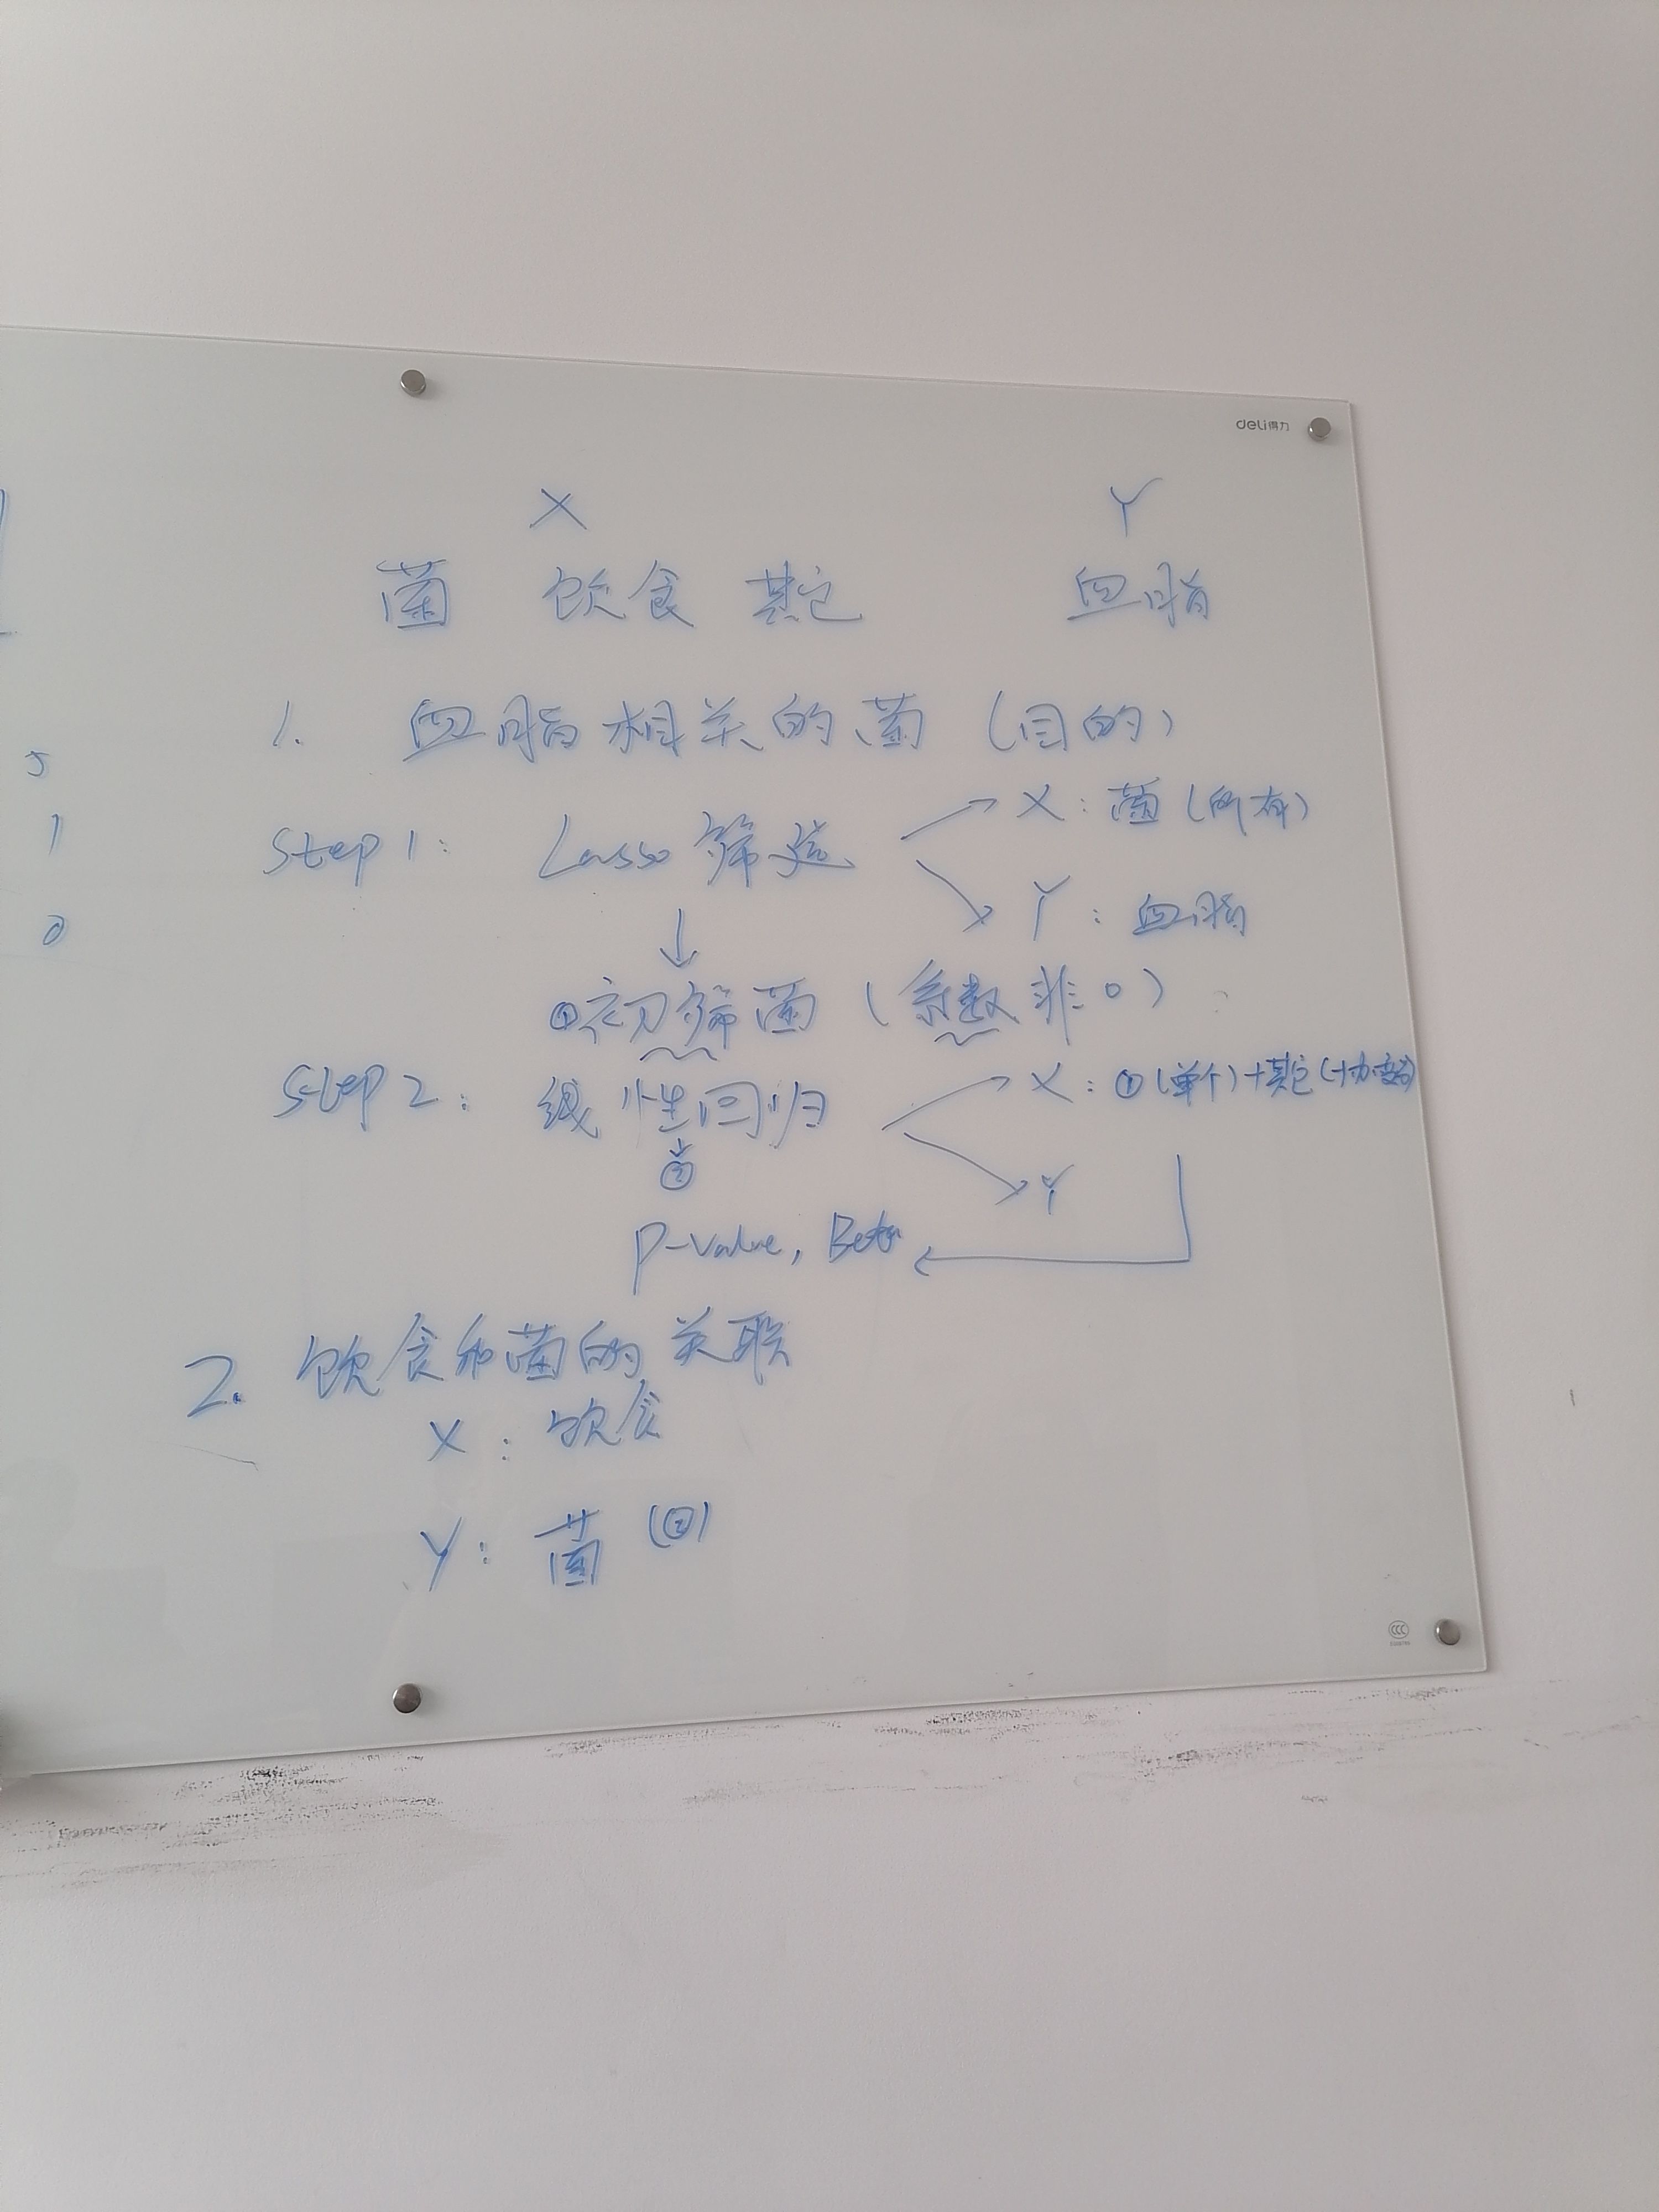 deli得力
X Y
菌 饮食 其它 血脂
1. 血脂相关的菌 (目的)
Step 1: Lasso 筛选
X: 菌 (所有)
Y: 血脂
↓
①初筛菌 (系数非0)
Step 2: 线性回归
X: ①(单个)+其它(协变量)
Y
↓
②
P-value, Beta
2. 饮食和菌的关联
X: 饮食
Y: 菌 (②)
5
1
0
CCC